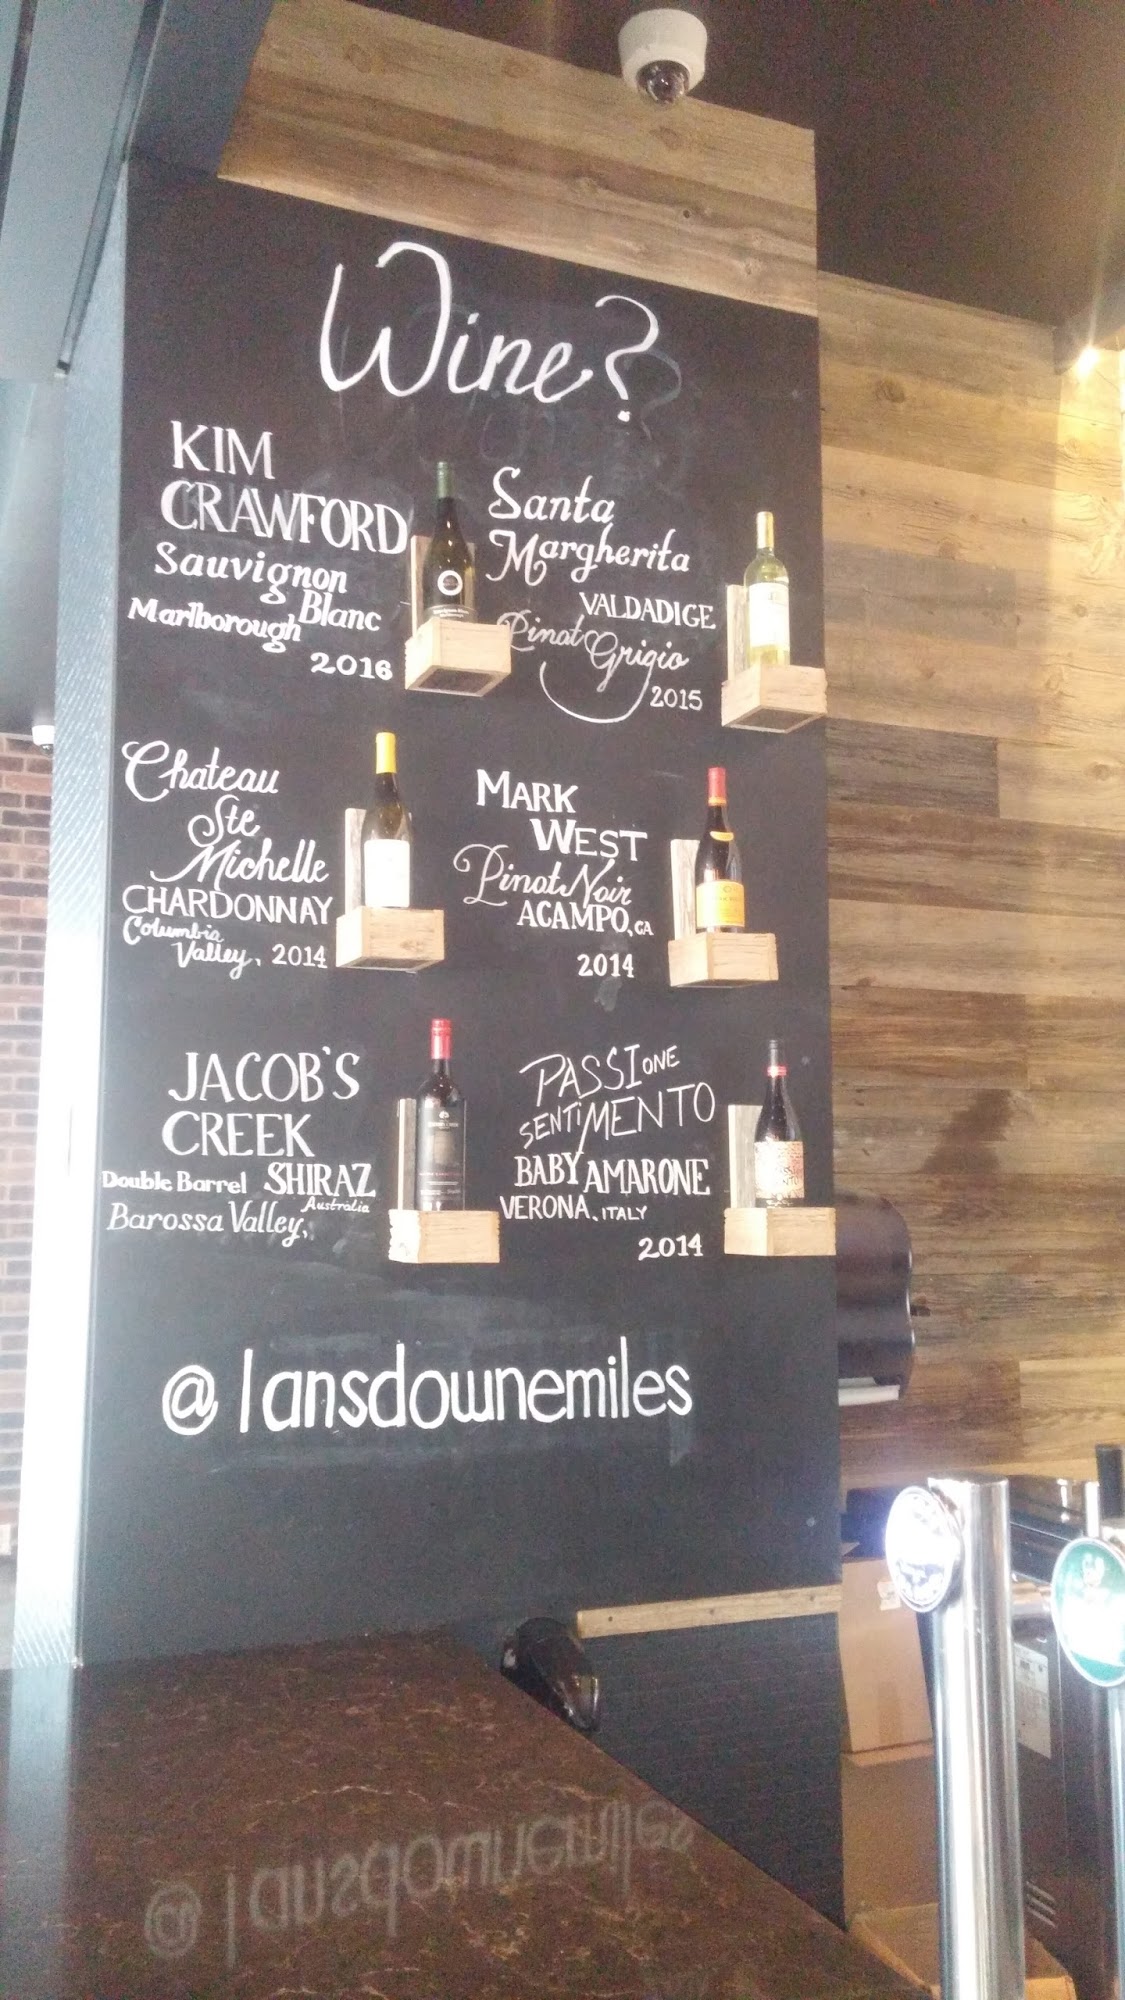 Wine?
KIM
CRAWFORD
Sauvignon
Blanc
Marlborough
2016
Santa
Margherita
VALDADIGE
Pinot Grigio
2015
Chateau
Ste
Michelle
CHARDONNAY
Columbia
Valley, 2014
MARK
WEST
Pinot Noir
ACAMPO, CA
2014
JACOB'S
CREEK
Double Barrel SHIRAZ
Barossa Valley, Australia
PASSIONE
SENTIMENTO
BABY AMARONE
VERONA, ITALY
2014
@lansdownemiles